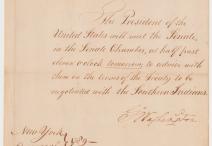 The President of the
United States will meet the Senate,
in the Senate Chamber, at half past
eleven o'clock tomorrow, to advise with
them on the terms of the Treaty to be
negotiated with the Southern Indians.
G. Washington
New York